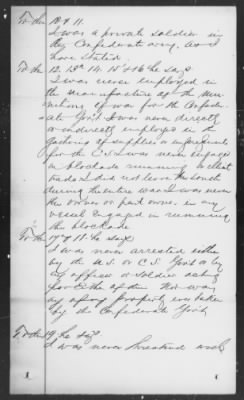 To the 10 & 11.
I was a private soldier in
the Confederate army, as I
have stated.
To the 12. 13th 14. 15 & 16 he says
I was never employed in
the manufacture of the mu
nitions of war for the Confeder
ate Gov't. I was never directly
or indirectly employed in the
gathering of supplies or
for the C.S. was never engaged
in blockade running or illicit
trade. I did not leave the South
during the entire war. I was never
the owner or part owner in any
vessel engaged in running
the blockade
To the 17 & 18. he says
I was never arrested either
by the U.S. or C.S. Gov't or by
any officer or soldier acting
for either of them. Nor was
any of my property ever taken
by the Confederate Gov't.
To the 19 he says
I was never threatened with